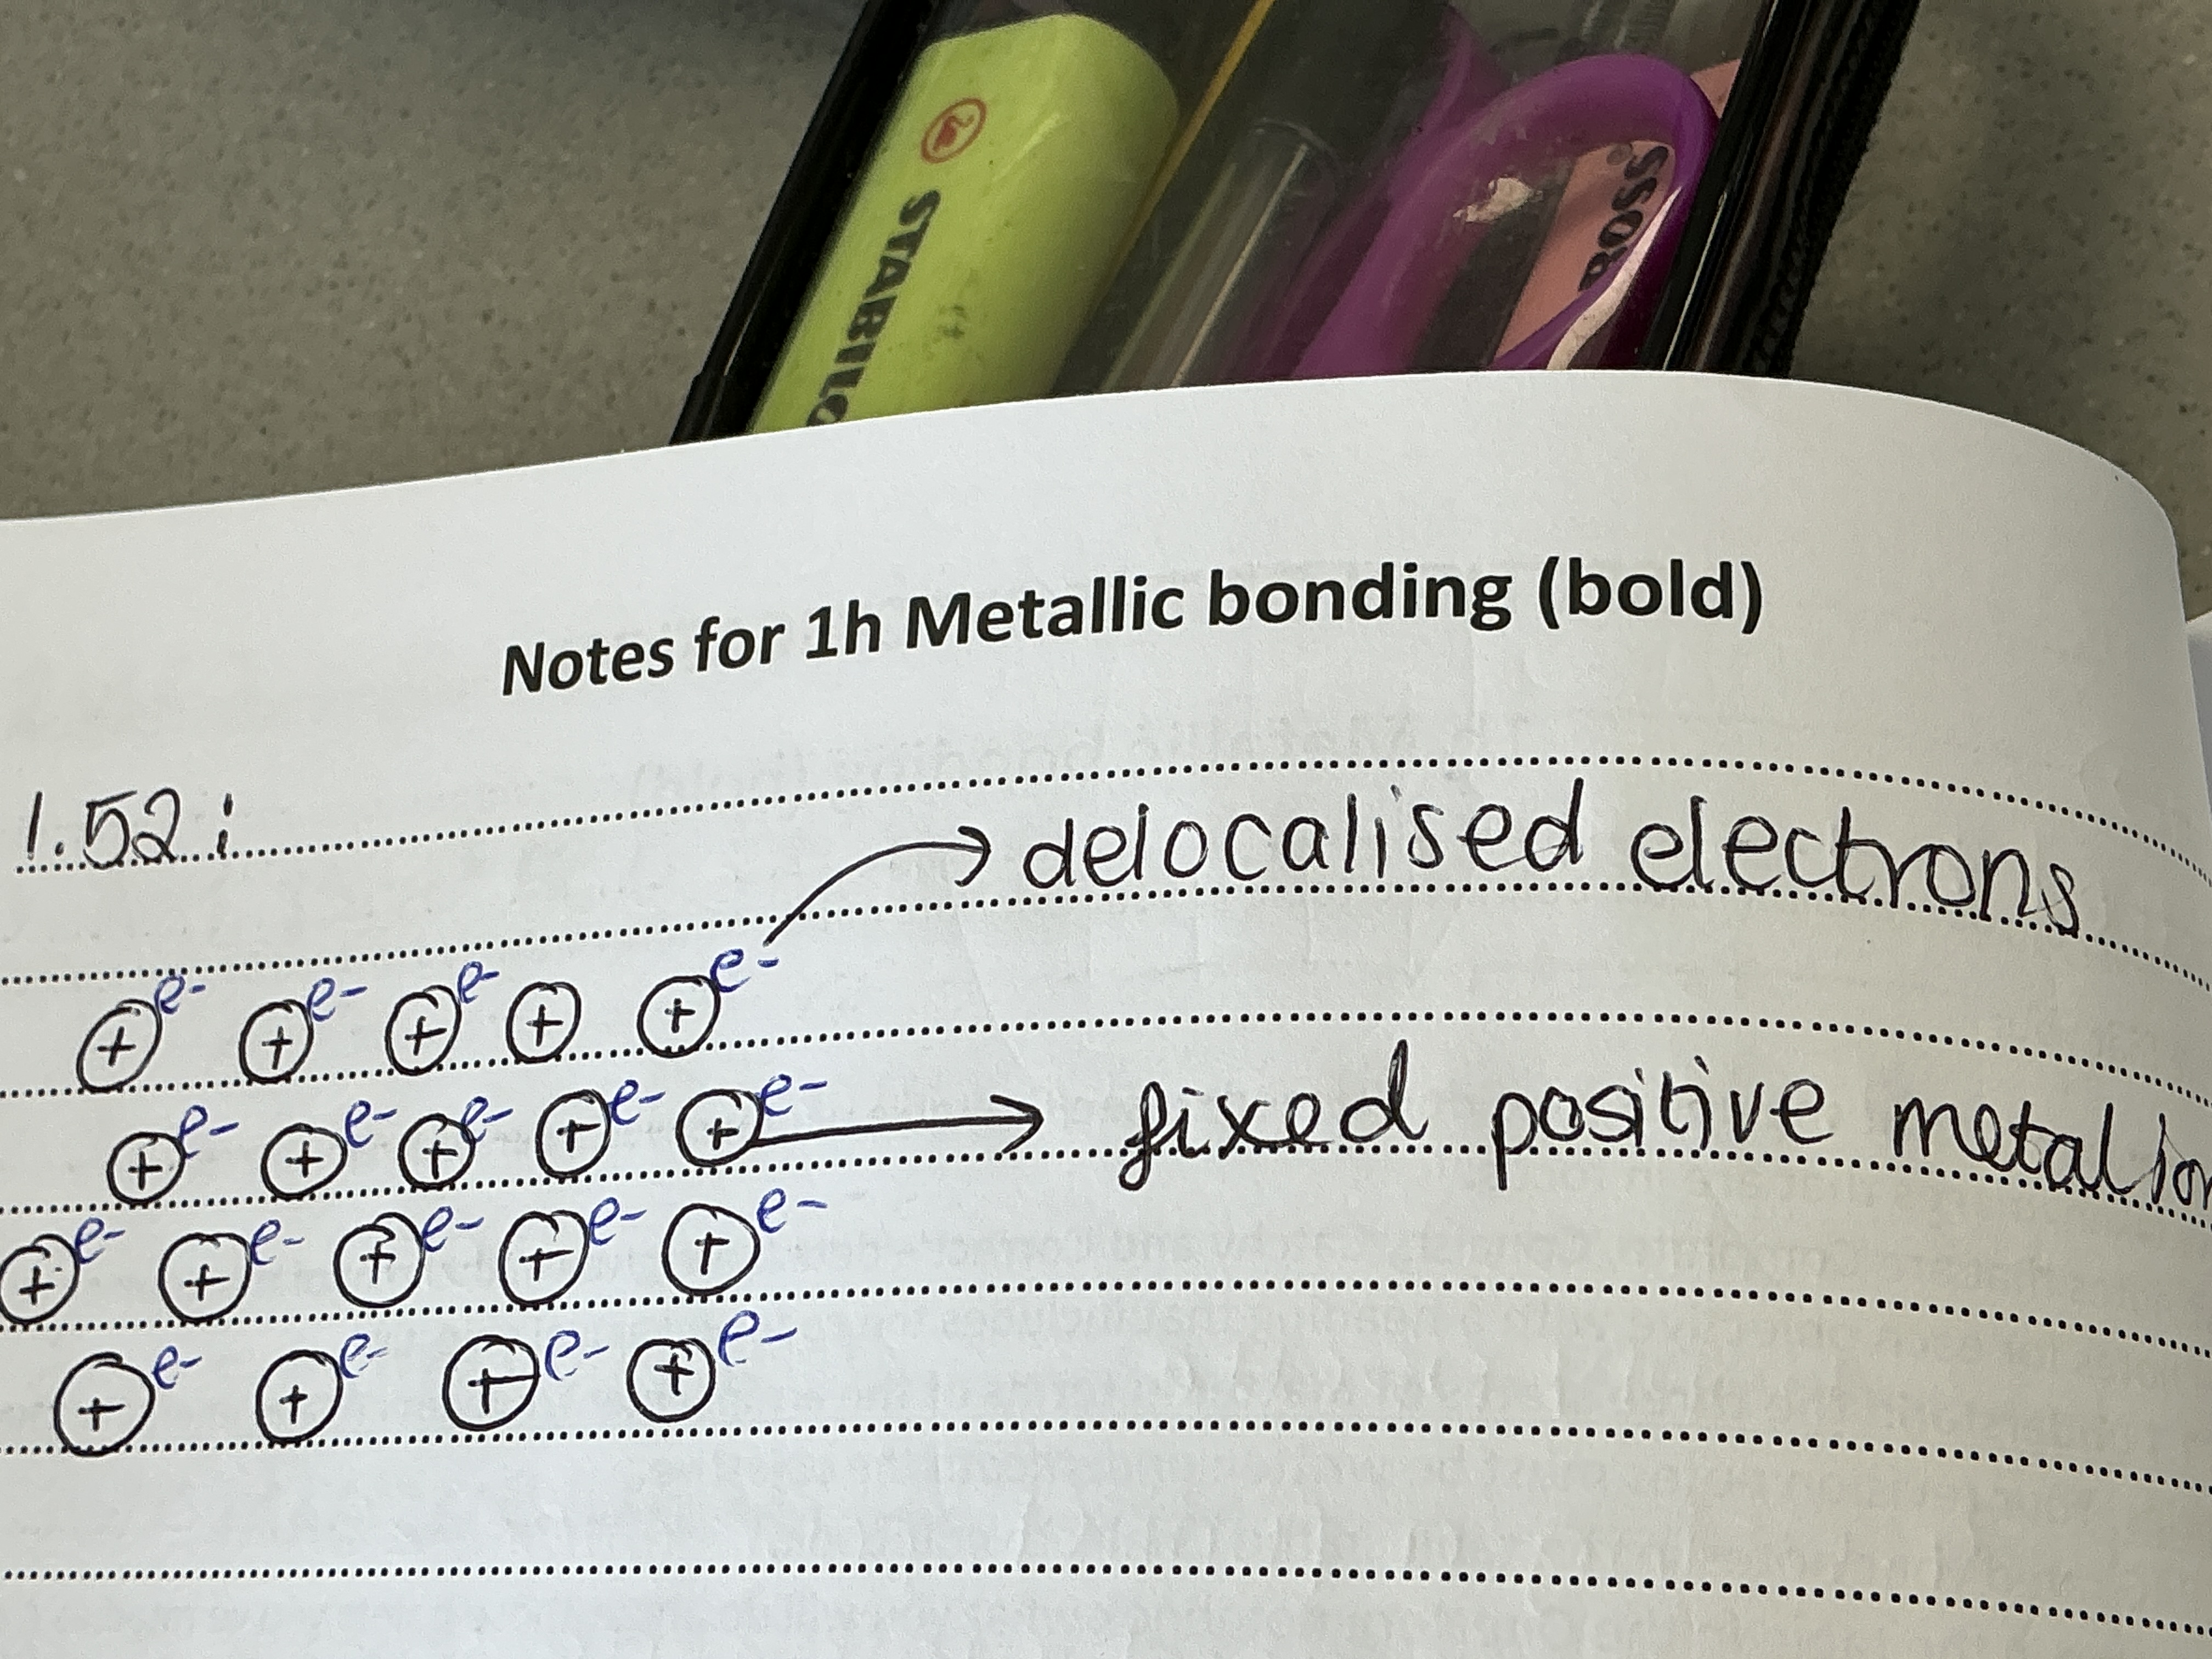 STABILO
BOSS
Notes for 1h Metallic bonding (bold)
1.52 i
delocalised electrons
e- e- e- e-
+ + + + +
fixed positive metal ion
e- e- e- e- e-
+ + + + +
e- e- e- e- e-
+ + + + +
e- e- e- e-
+ + + +